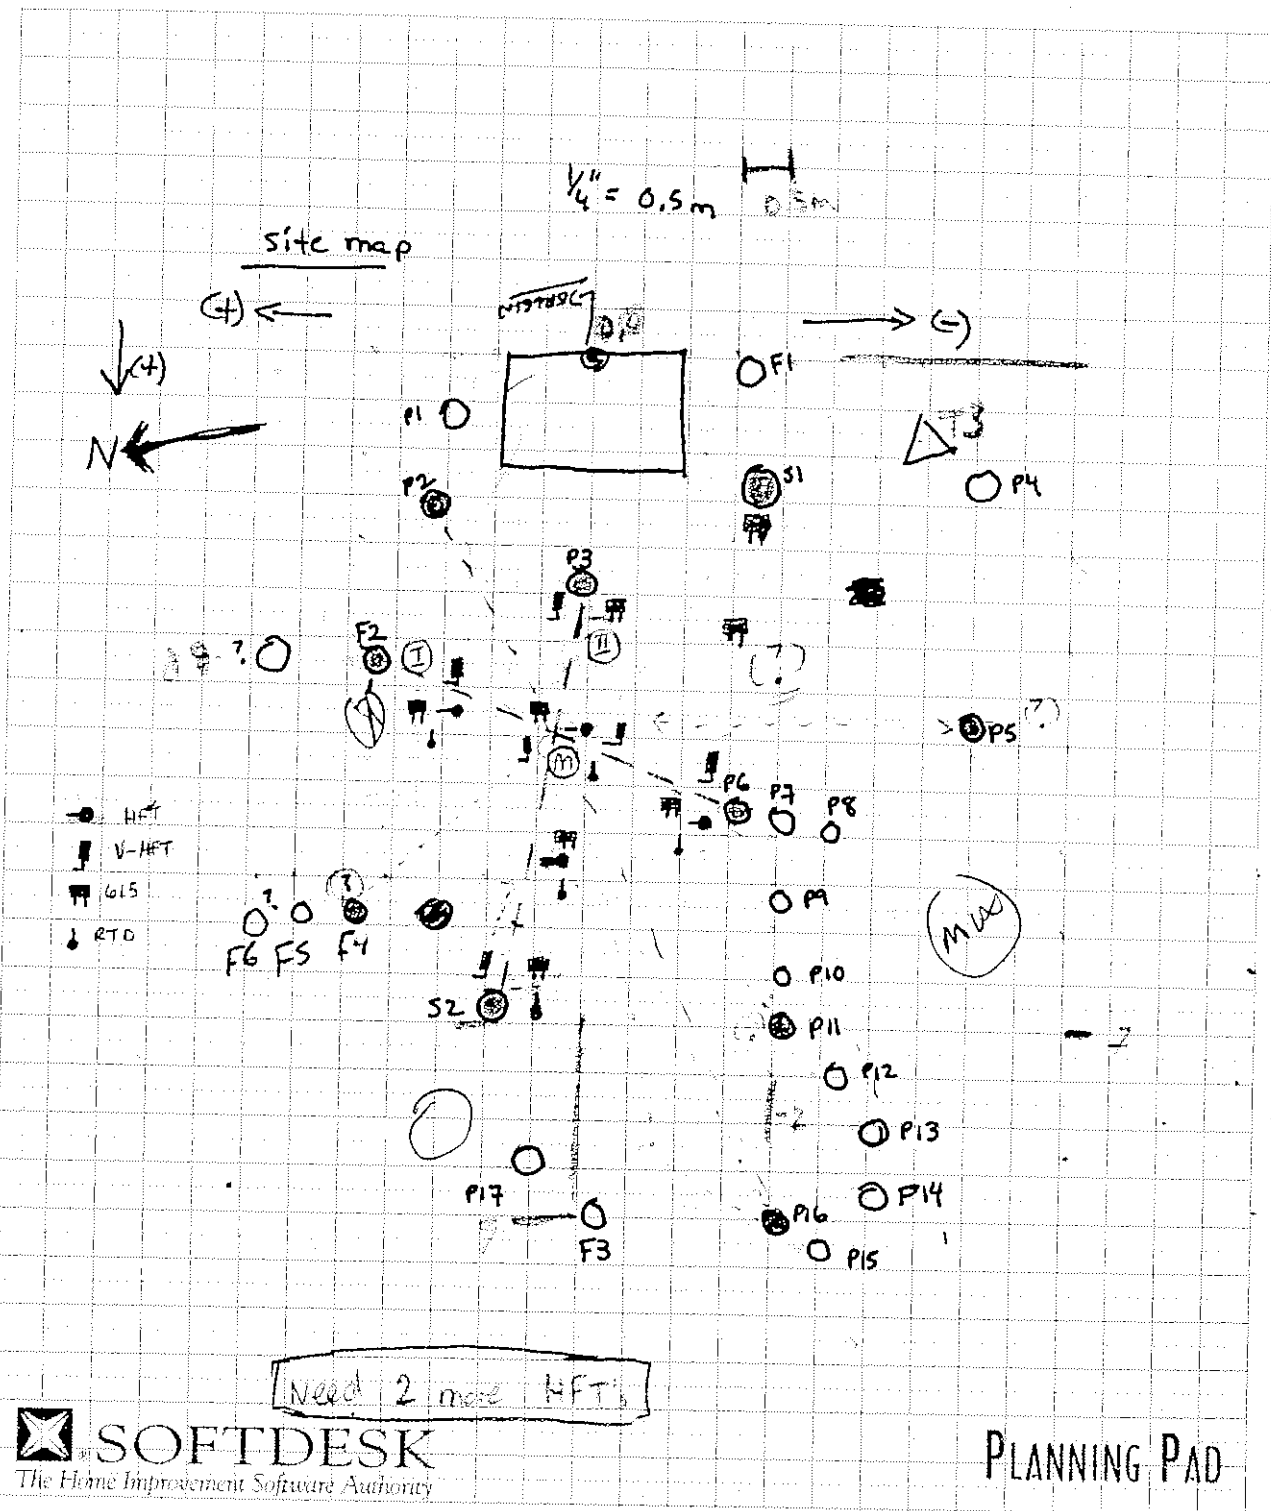 1/4" = 0.5m
0.5m
site map
(+)
ORIGIN
0,0
(-)
(+)
F1
N
P1
T3
P2
S1
P4
P3
F2
I
II
?
(?)
P5 (?)
III
P6
P7
P8
HFT
V-HFT
615
RTD
(?)
?
F6
F5
F4
P9
MUX
P10
S2
P11
P12
-2
P13
P17
P14
P16
F3
P15
Need 2 more HFT's
SOFTDESK
The Home Improvement Software Authority
PLANNING PAD